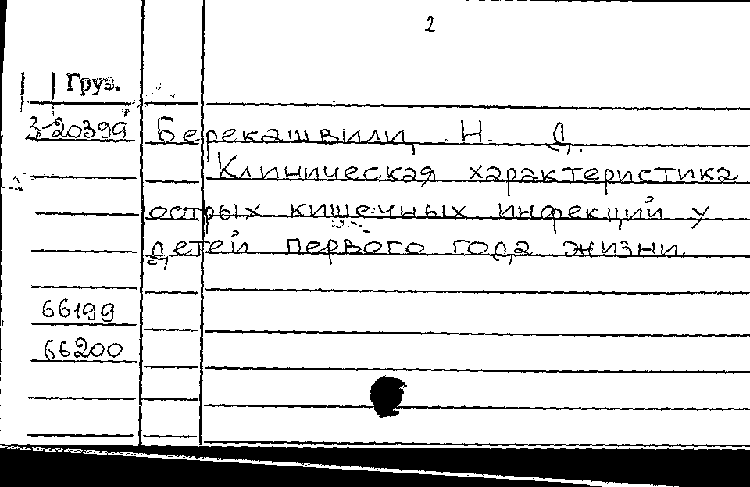 2
Груз.
3-20399 Берекашвили, Н. Д.
Клиническая характеристика
острых кишечных инфекций у
детей первого года жизни.
66199
66200